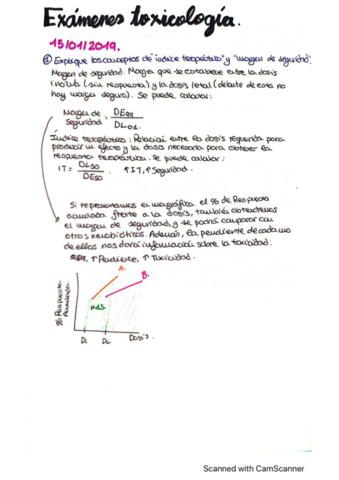 Exámenes toxicología.
15/01/2019.
① Explique los conceptos de "índice terapéutico" y "margen de seguridad".
Margen de seguridad: Margen que se establece entre la dosis
inocua (sin respuesta) y la dosis letal (delante de esta no
hay margen seguro). Se puede calcular:
Margen de Seguridad = DE99 / DL01.
Índice terapéutico: Relación entre la dosis requerida para
producir un efecto y la dosis necesaria para obtener la
respuesta terapéutica. Se puede calcular:
IT = DL50 / DE50 ↑IT, ↑Seguridad.
Si representamos en una gráfica el % de Respuesta
acumulada frente a la dosis, también obtendremos
el margen de seguridad, y se podrá comparar con
otros xenobióticos. Además, la pendiente de cada uno
de ellos nos dará información sobre la toxicidad:
↑Pendiente, ↑Toxicidad.
A.
B.
% Respuesta Acumulada
MdS
Di
DL
Dosis.
Scanned with CamScanner